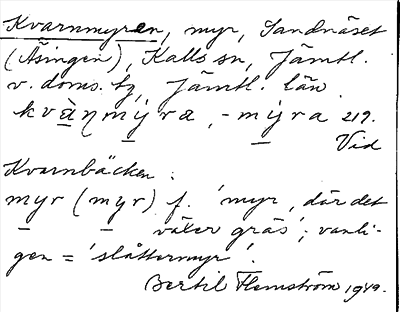 Kvarnmyren, myr, Sandnäset
(Äsingen), Kalls sn, Jämtl.
v. doms. tg, Jämtl. län
kvàṇmýra, -mýra 219.
Vid
Kvarnbäcken.
myr (myr) f. 'myr, där det
växer gräs'; vanli-
gen = 'slåttermyr'.
Bertil Flemström 1949.